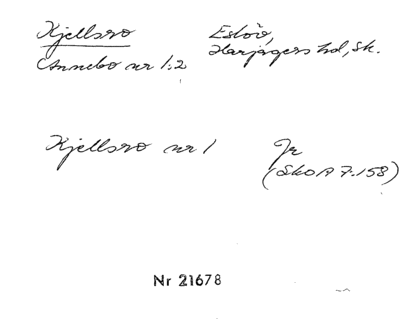 Kjellsro Eslöv,
Annebo nr 1:2 Harjagers hd, Sk.
Kjellsro nr 1 Jr
(SkO A 7.158)
Nr 21678